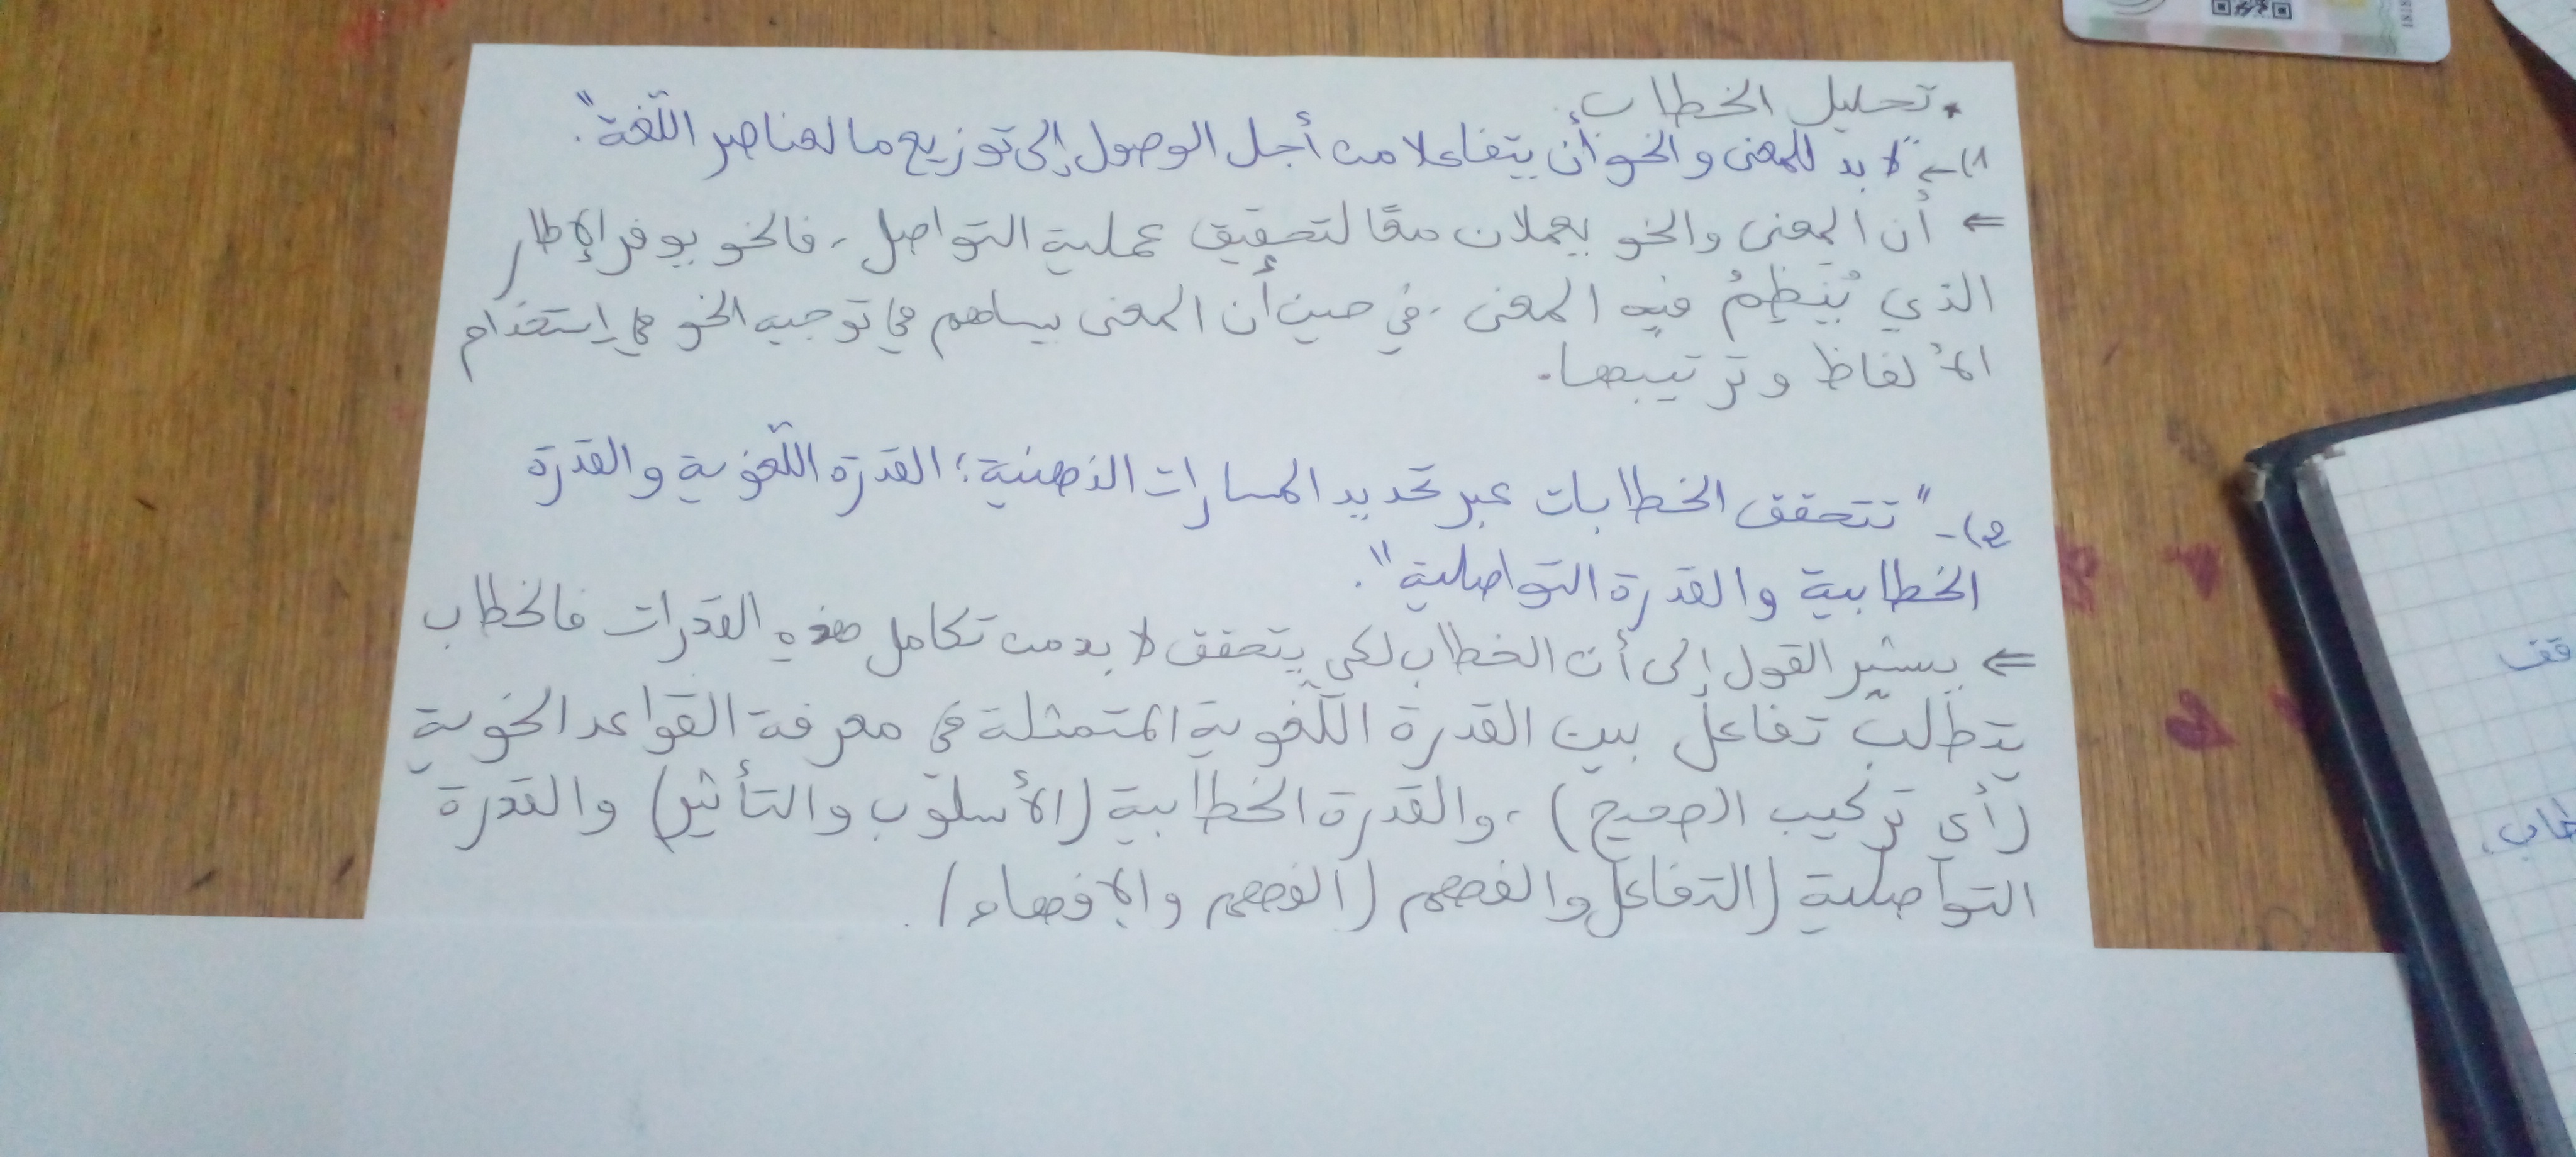 * تحليل الخطاب.
1) ← "لا بد للمعنى والنحو أن يتفاعلا من أجل الوصول إلى توزيع ما لعناصر اللّغة".
⇐ أن المعنى والنحو يعملان معًا لتحقيق عملية التواصل، فالنحو يوفر الإطار
الذي يُنَظِمُ فيه المعنى، في حين أن المعنى يساهم في توجيه النحو في إستخدام
الألفاظ وترتيبها.
2) - "تتحقق الخطابات عبر تحديد المسارات الذهنية؛ القدرة اللّغوية والقدرة
الخطابية والقدرة التواصلية".
⇐ يشير القول إلى أن الخطاب لكي يتحقق لا بد من تكامل هذه القدرات فالخطاب
يتطلّب تفاعل بين القدرة اللّغوية المتمثلة في معرفة القواعد النحوية
(أي تركيب الصحيح)، والقدرة الخطابية (الأسلوب والتأثير) والقدرة
التواصلية (التفاعل والفهم (الفهم والإفهام).
قف
طاب.